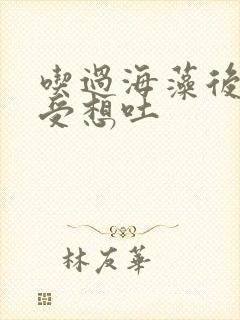 喫過海藻後
受想吐
林友華